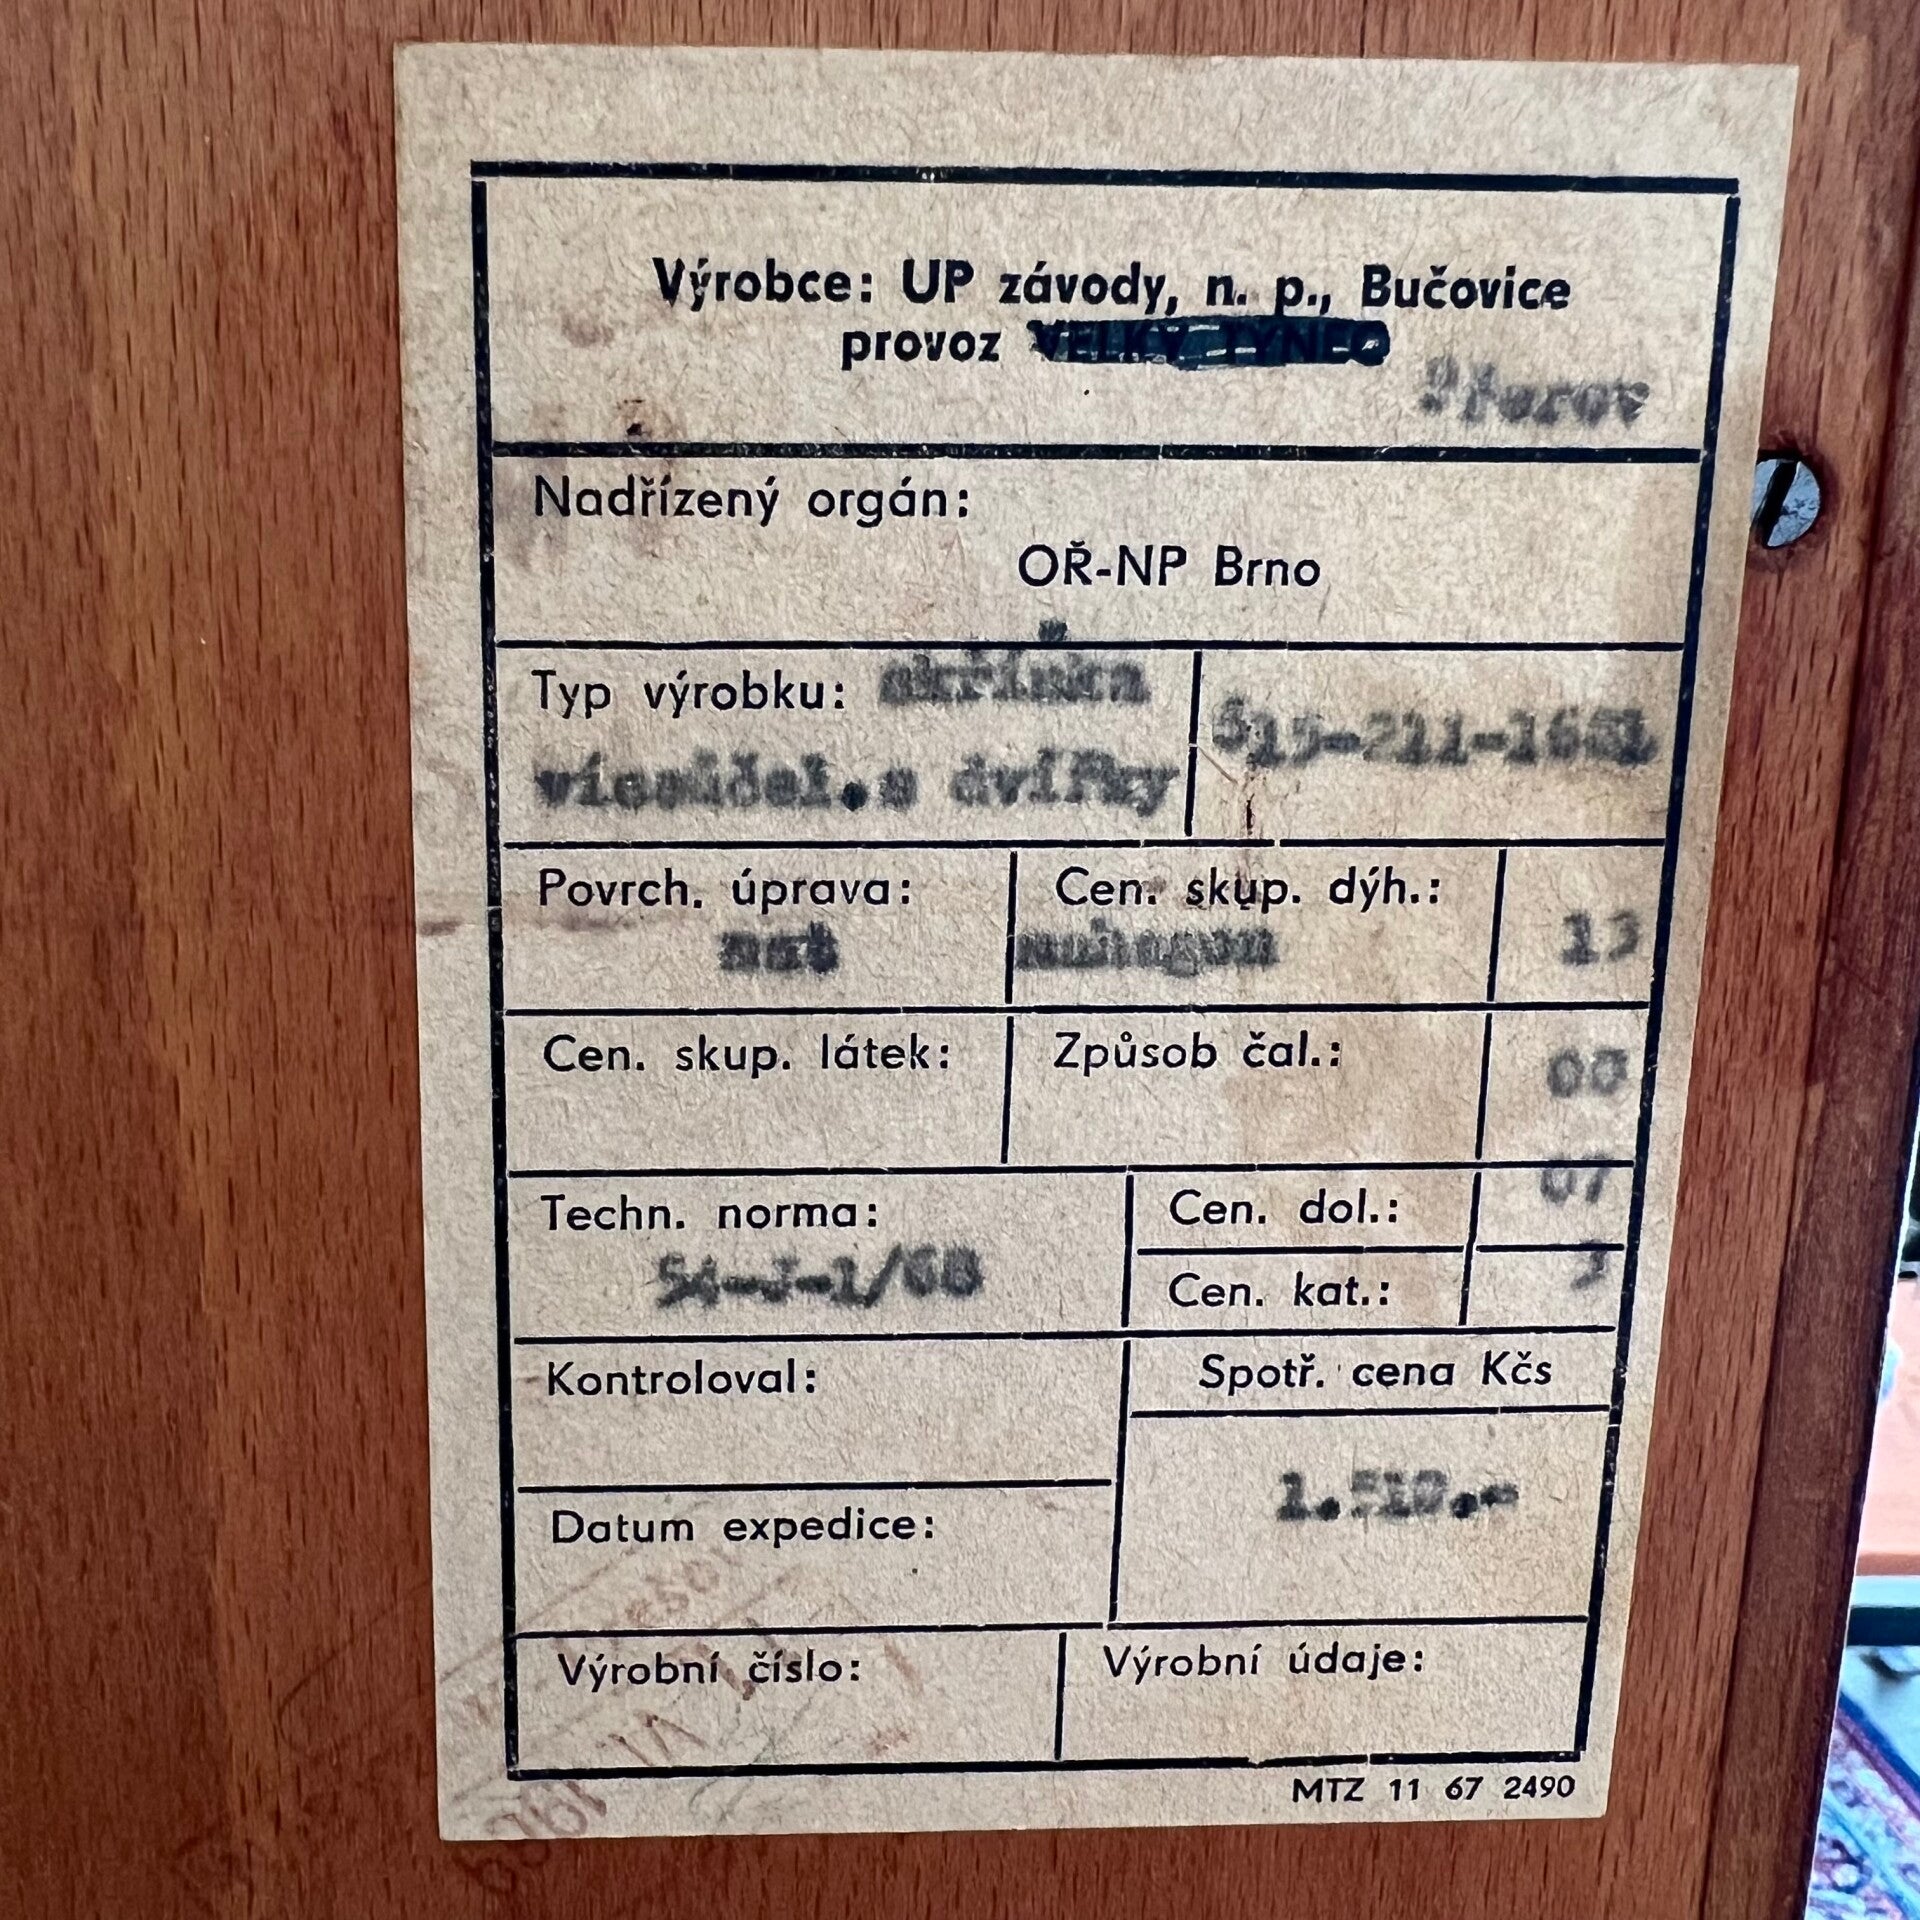 Výrobce: UP závody, n. p., Bučovice
provoz VELKÝ TÝNEC
Nadřízený orgán:
OŘ-NP Brno
Typ výrobku: skříňka
víceúčel.s dvířky
Povrch. úprava:
mat
Cen. skup. dýh.:
mahagon
13
Cen. skup. látek:
Způsob čal.:
00
Techn. norma:
54-J-1/68
Cen. dol.:
07
Cen. kat.:
Kontroloval:
Spotř. cena Kčs
Datum expedice:
Výrobní číslo:
Výrobní údaje:
MTZ 11 67 2490